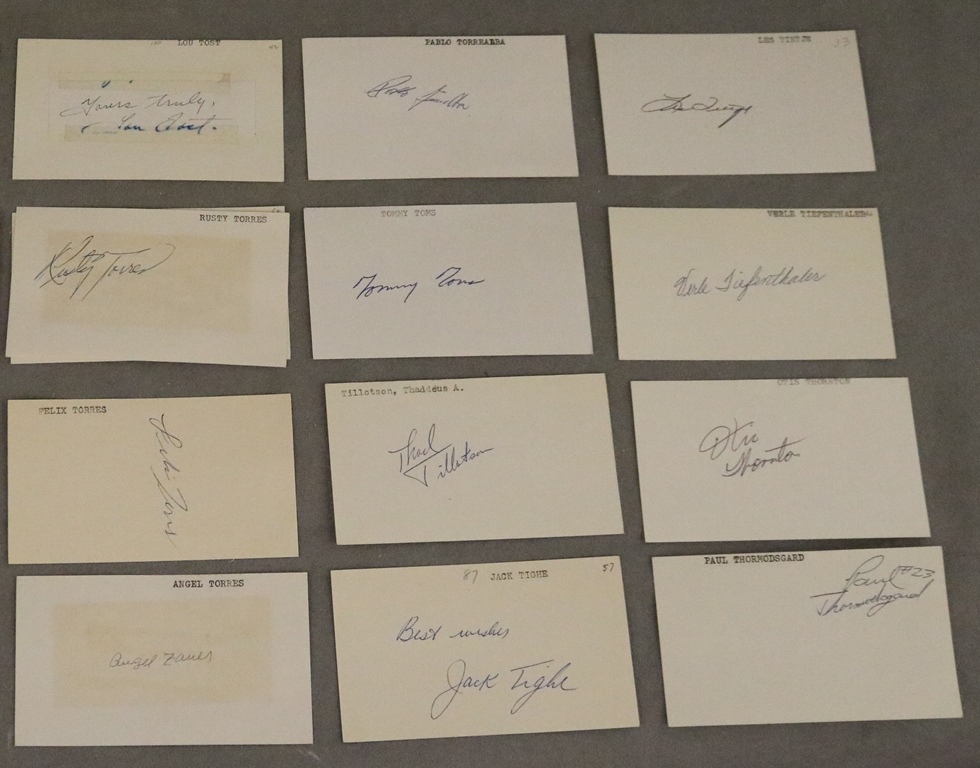 LOU TOST
Yours truly,
Lou Tost.
PABLO TORREALBA
LES TIETJE 33
RUSTY TORRES
Rusty Torres
TOMMY TOMS
Tommy Toms
VERLE TIEFENTHALER
Verle Tiefenthaler
FELIX TORRES
Felix Torres
Tillotson, Thaddeus A.
Thad
Tillotson
OTIS THORNTON
Otis
Thornton
ANGEL TORRES
Angel
87 JACK TIGHE 57
Best wishes
Jack Tighe
PAUL THORMODSGARD
Paul #23
Thormodsgard